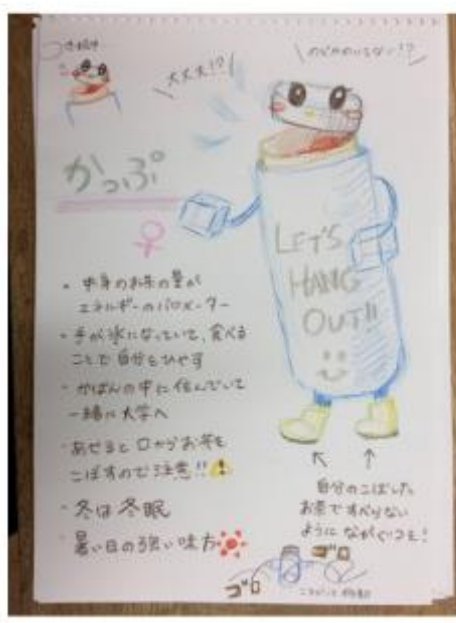 大丈夫!?
のどかわいてない!?
かっぷ
♀
LET'S
HANG
OUT!!
・中身のお茶の量が
エネルギーのバロメーター
・手が氷になっていて、食べる
ことで自分をひやす
・かばんの中に住んでいて
一緒に大学へ
・あせると口からお茶を
こぼすので注意!!
・冬は冬眠
・暑い日の強い味方
↖ ↑
自分のこぼした
お茶ですべらない
ようにながぐつを!
ゴロ
ゴロ